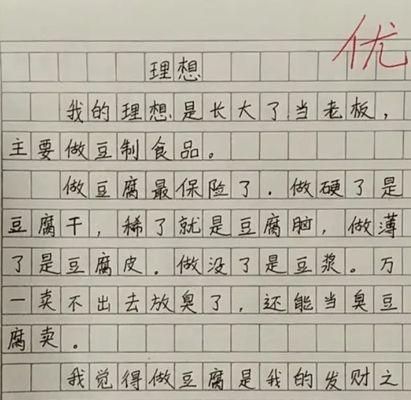 优
理想
我的理想是长大了当老板，
主要做豆制食品。
做豆腐最保险了．做硬了是
豆腐干，稀了就是豆腐脑，做薄
了是豆腐皮．做没了是豆浆。万
一卖不出去放臭了，还能当臭豆
腐卖。
我觉得做豆腐是我的发财之